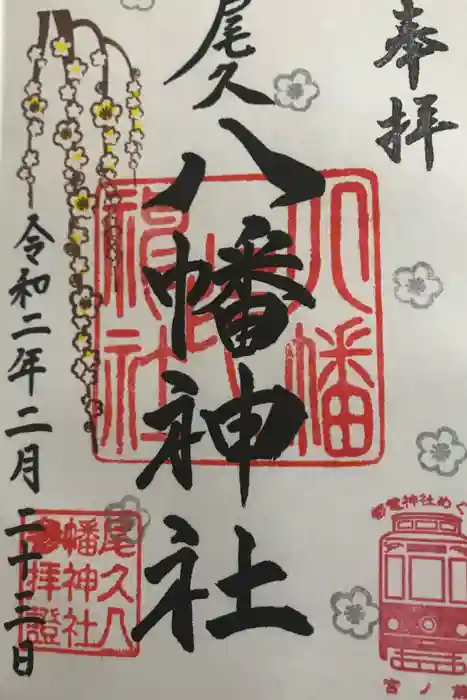 奉拝
尾久
八幡神社
八幡
神社
令和二年二月二十三日
尾久八
幡神社
参拝證
都電神社めぐ
宮ノ前